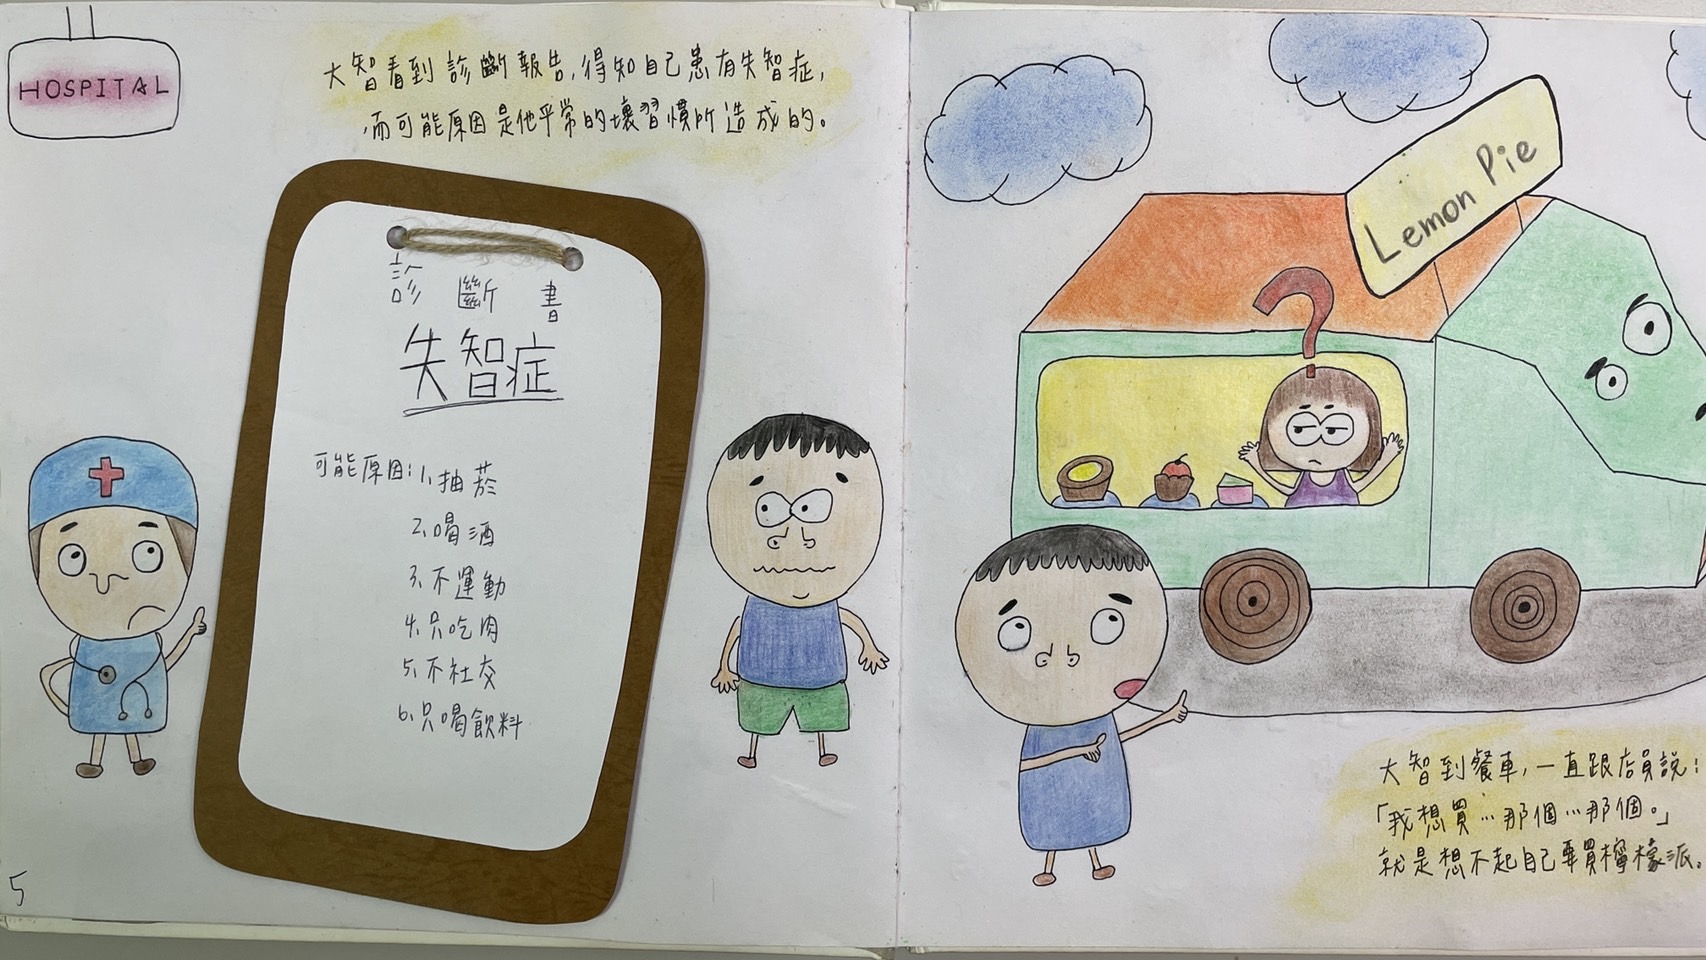 HOSPITAL
大智看到診斷報告,得知自己患有失智症,
而可能原因是他平常的壞習慣所造成的。
診斷書
失智症
可能原因:1.抽菸
2.喝酒
3.不運動
4.只吃肉
5.不社交
6.只喝飲料
5
Lemon Pie
?
大智到餐車,一直跟店員說:
「我想買…那個…那個。」
就是想不起自己要買檸檬派。